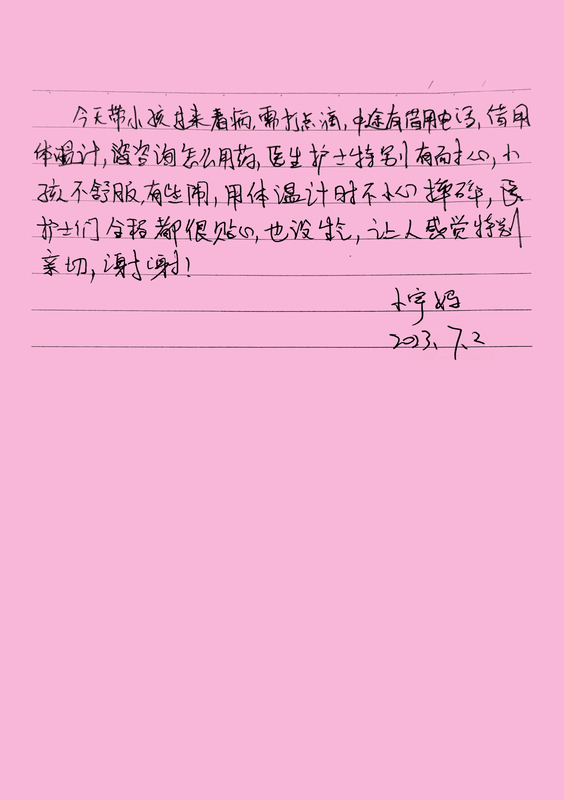 今天带小孩过来看病,需打点滴,中途有借用电话,借用
体温计,咨询怎么用药,医生护士特别有耐心,小
孩不舒服,有些闹,用体温计时不小心摔碎,医
护士们全程都很贴心,也没生气,让人感觉特别
亲切,谢谢!
小宇妈
2023.7.2